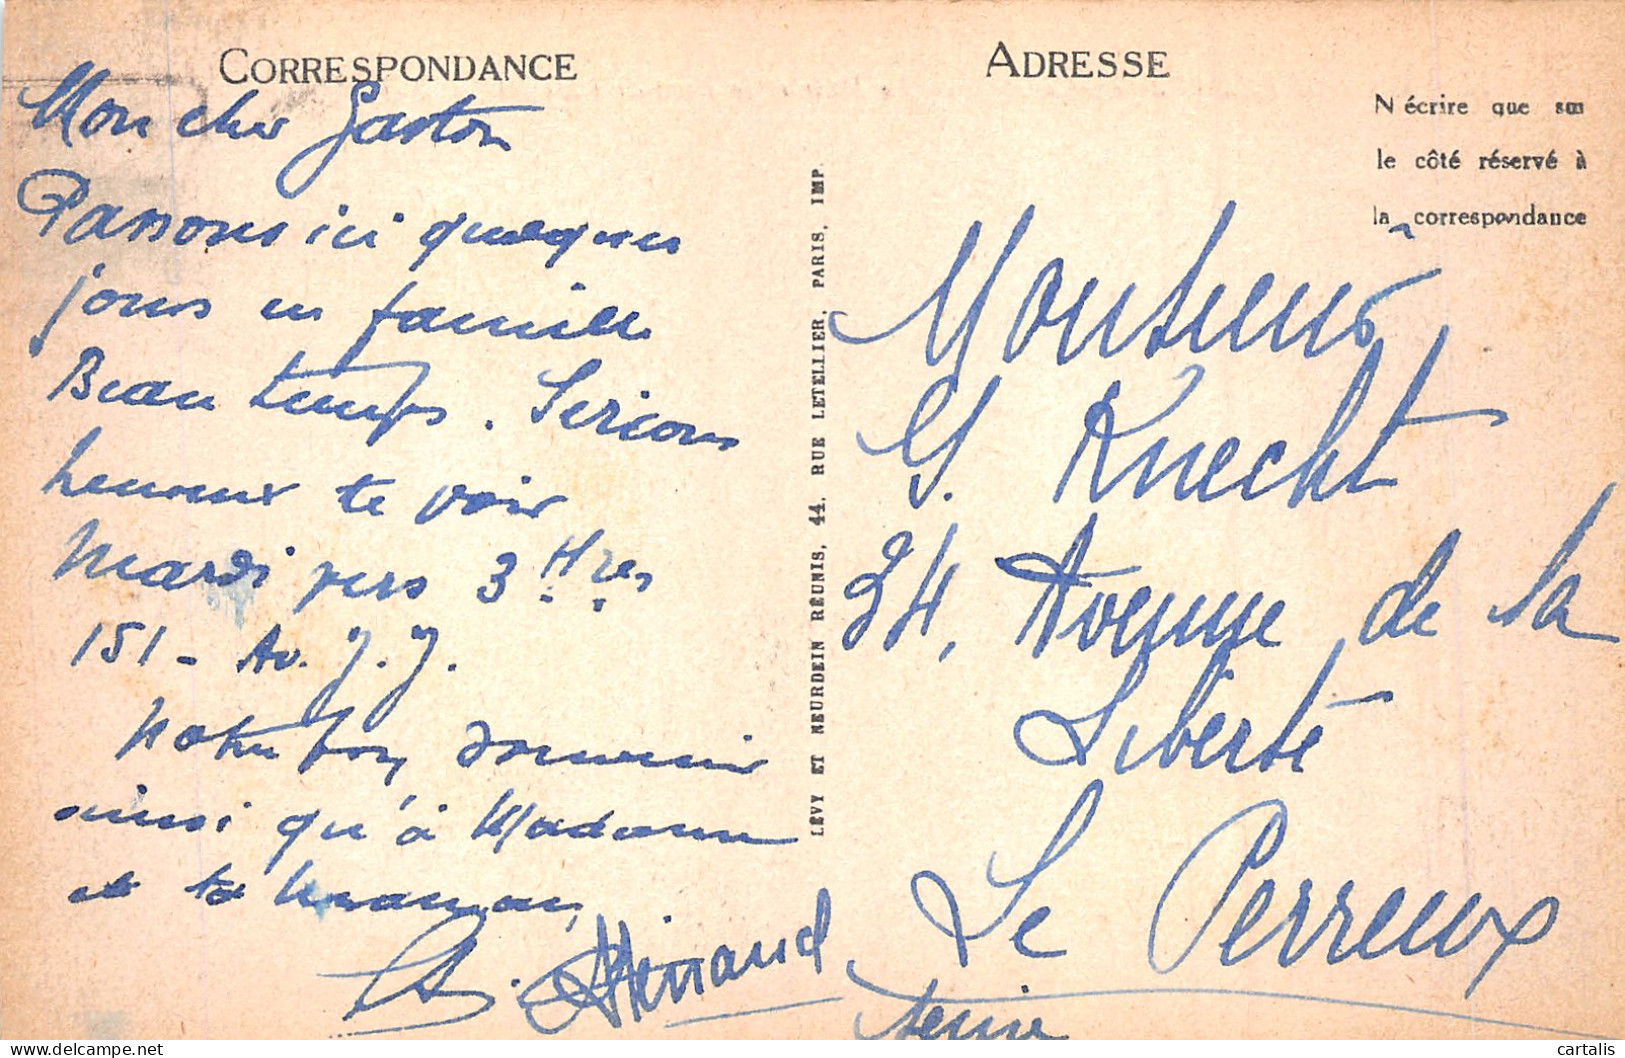 CORRESPONDANCE
Mon cher Gaston
Passons ici quelques
jours en famille
Beau temps. Serions
heureux te voir
Mardi vers 3 Hres
151 - Av. J. J.
Notre bon souvenir
ainsi qu'à Madame
et ta maman,
LÉVY ET NEURDEIN RÉUNIS, 44, RUE LETELLIER, PARIS, IMP.
ADRESSE
N écrire que sur
le côté réservé à
la correspondance
Monsieur
G. Knecht
34, Avenue de la
Liberté
Le Perreux
Seine
cartalis